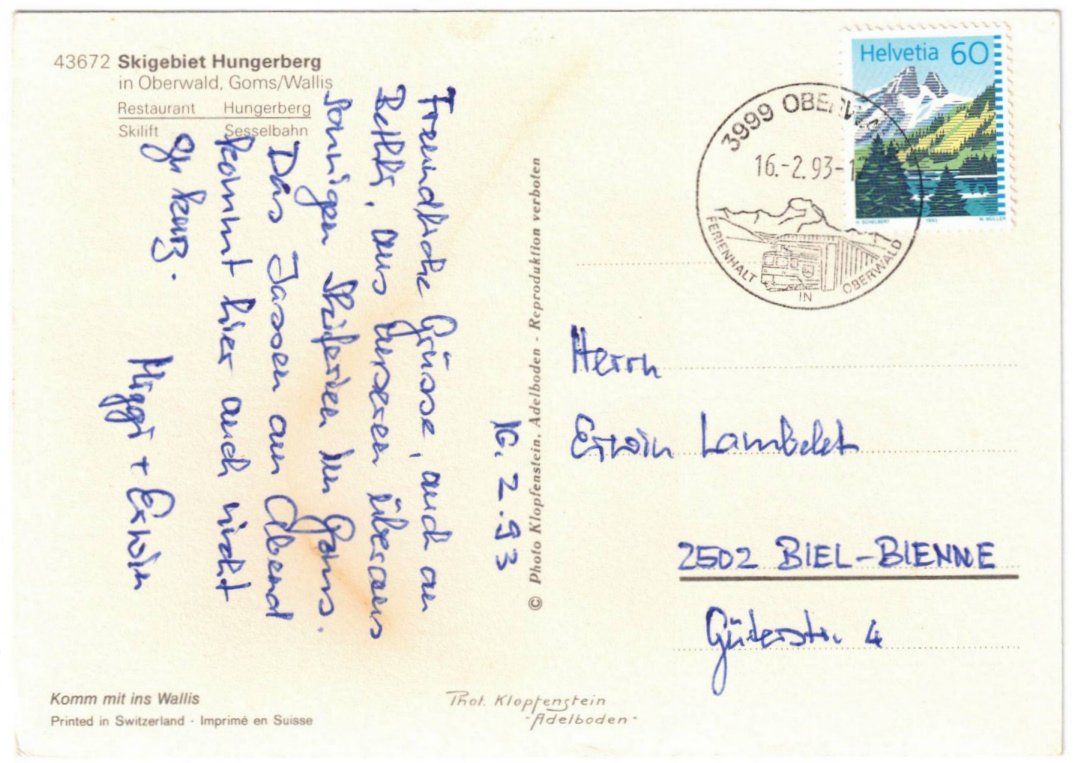 43672 Skigebiet Hungerberg
in Oberwald, Goms/Wallis
Restaurant Hungerberg
Skilift Sesselbahn
16. 2. 93
Freundliche Grüsse, auch an
Bethli, aus unseren überaus
sonnigen Skiferien im Goms.
Das Jassen am Abend
kommt hier auch nicht
zu kurz.
Miggi + Erwin
© Photo Klopfenstein, Adelboden - Reproduktion verboten
Helvetia 60
H. SCHELBERT 1993 N. MÜLLER
3999 OBERWA
16.-2.93-1
FERIENHALT IN OBERWALD
Herrn
Erwin Lambelet
2502 BIEL-BIENNE
Güterstr. 4
Komm mit ins Wallis
Printed in Switzerland · Imprimé en Suisse
Phot. Klopfenstein
-Adelboden-